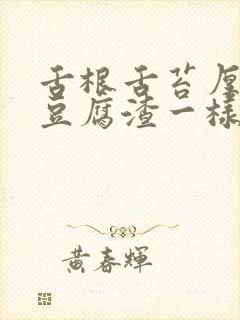 舌根舌苔厚
豆腐渣一樣
黃春輝